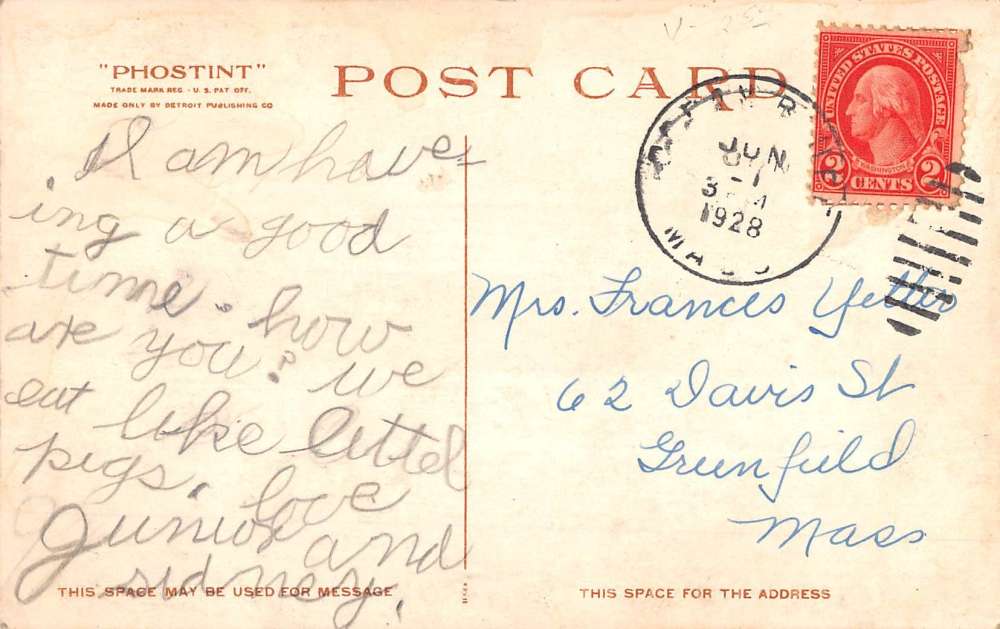 V - 2
"PHOSTINT"
TRADE MARK REG - U. S. PAT OFF.
MADE ONLY BY DETROIT PUBLISHING CO
POST CARD
UNITED STATES POSTAGE
WASHINGTON
2 CENTS 2
JUN
1
3
1928
MASS
I am have-
ing a good
time. how
are you? we
eat like littel
pigs. love
Junior and
sidney.
Mrs. Frances
62 Davis St
Greenfield
Mass
THIS SPACE MAY BE USED FOR MESSAGE
THIS SPACE FOR THE ADDRESS